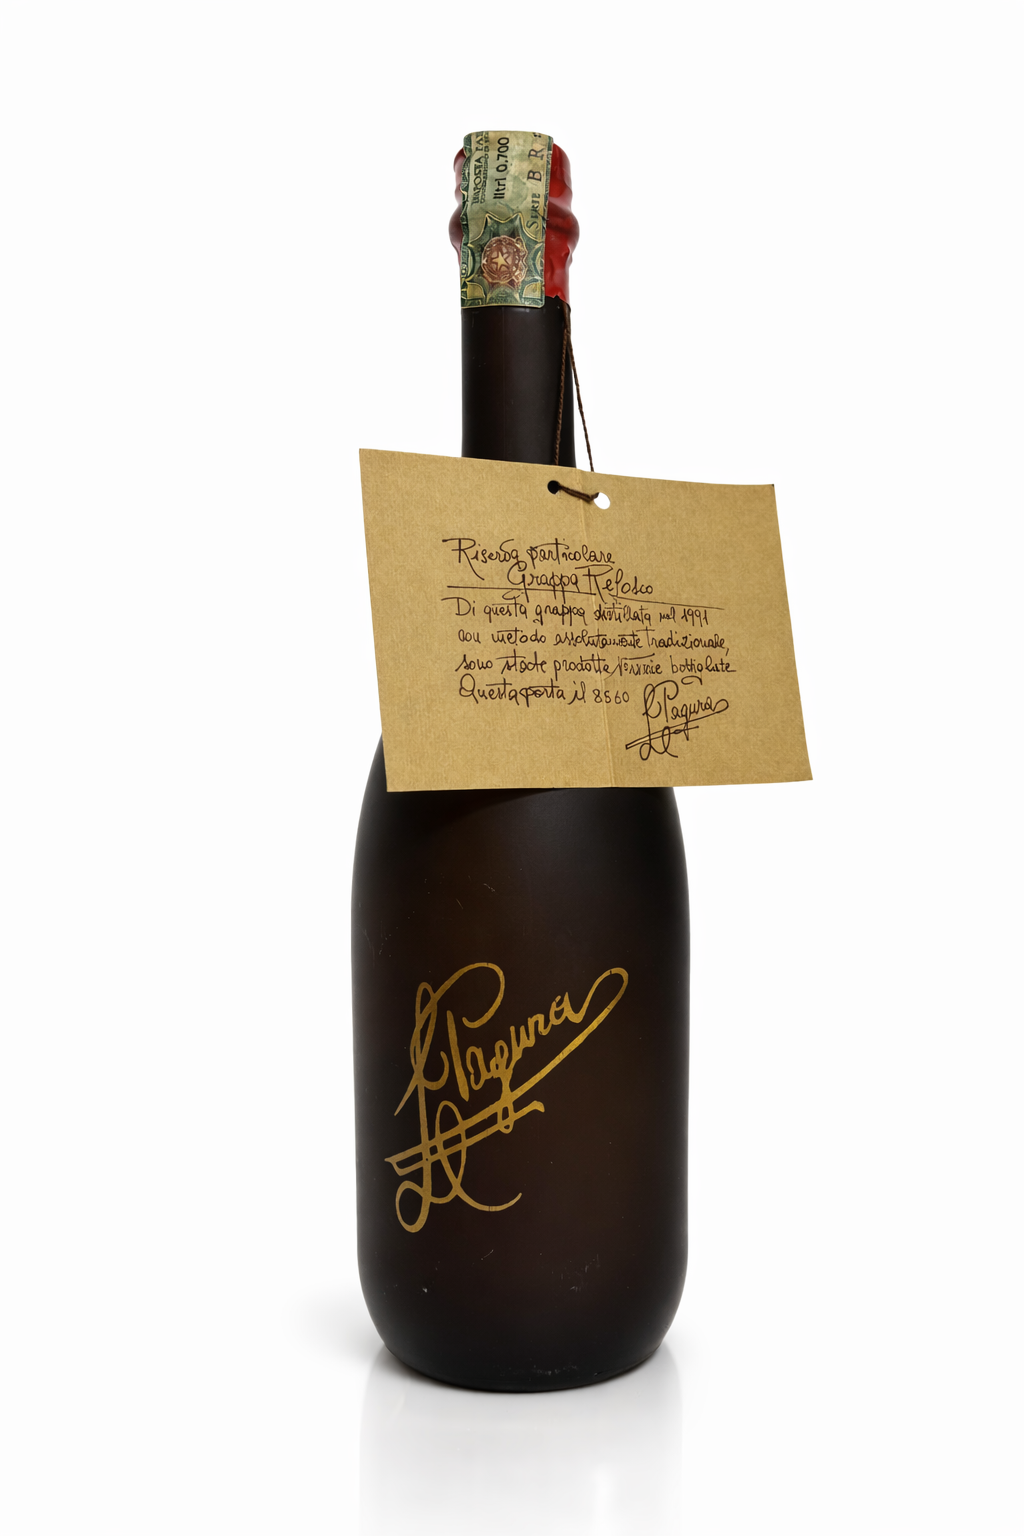 IMPOSTA
litri 0,700
SERIE B R
Riserva particolare
Grappa Refosco
Di questa grappa distillata nel 1991
con metodo assolutamente tradizionale,
sono state prodotte bottigliate
Questa porta il 8560
Pagura
Pagura